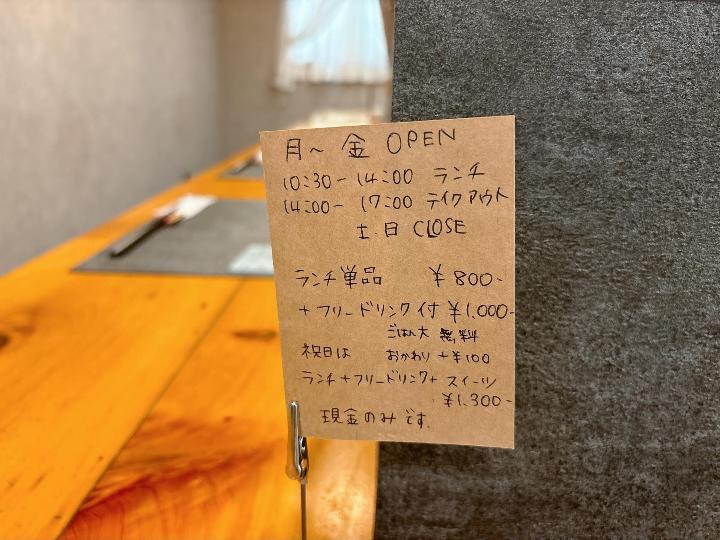 月～金 OPEN
10:30-14:00 ランチ
14:00-17:00 テイクアウト
土.日 CLOSE
ランチ単品 ¥800-
+フリードリンク付 ¥1,000-
ごはん大 無料
祝日は おかわり+¥100
ランチ+フリードリンク+スイーツ
¥1.300-
現金のみです.